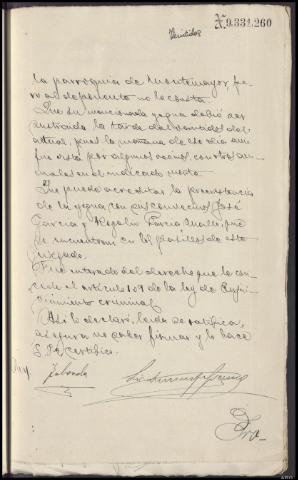 N.9.331.260
Veintidos
la parroquia de Montemayor, pe-
ro al deponente no le consta.
Que su mencionada yegua debió ser
sustraida la tarde del del
actual, pues la mañana de ese día aun
fue vista por algunos con otros ani-
males en el indicado monte
Que puede acreditar la preexistencia
de la yegua con sus convecinos José
García y Rogelio García que
se encuentran en los pasillos de este
Juzgado.
Fue enterado del derecho que le con-
cede el artículo 109 de la ley de Enjui-
ciamiento criminal
Así lo declaró, leida se ratifica,
asegura no saber firmar y lo hace
S. Sª. Certifico.
Taboada
Pro-